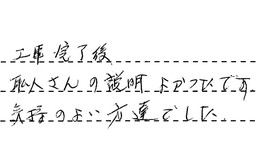 工事完了後
職人さんの説明よかったです
気持のよい方達でした